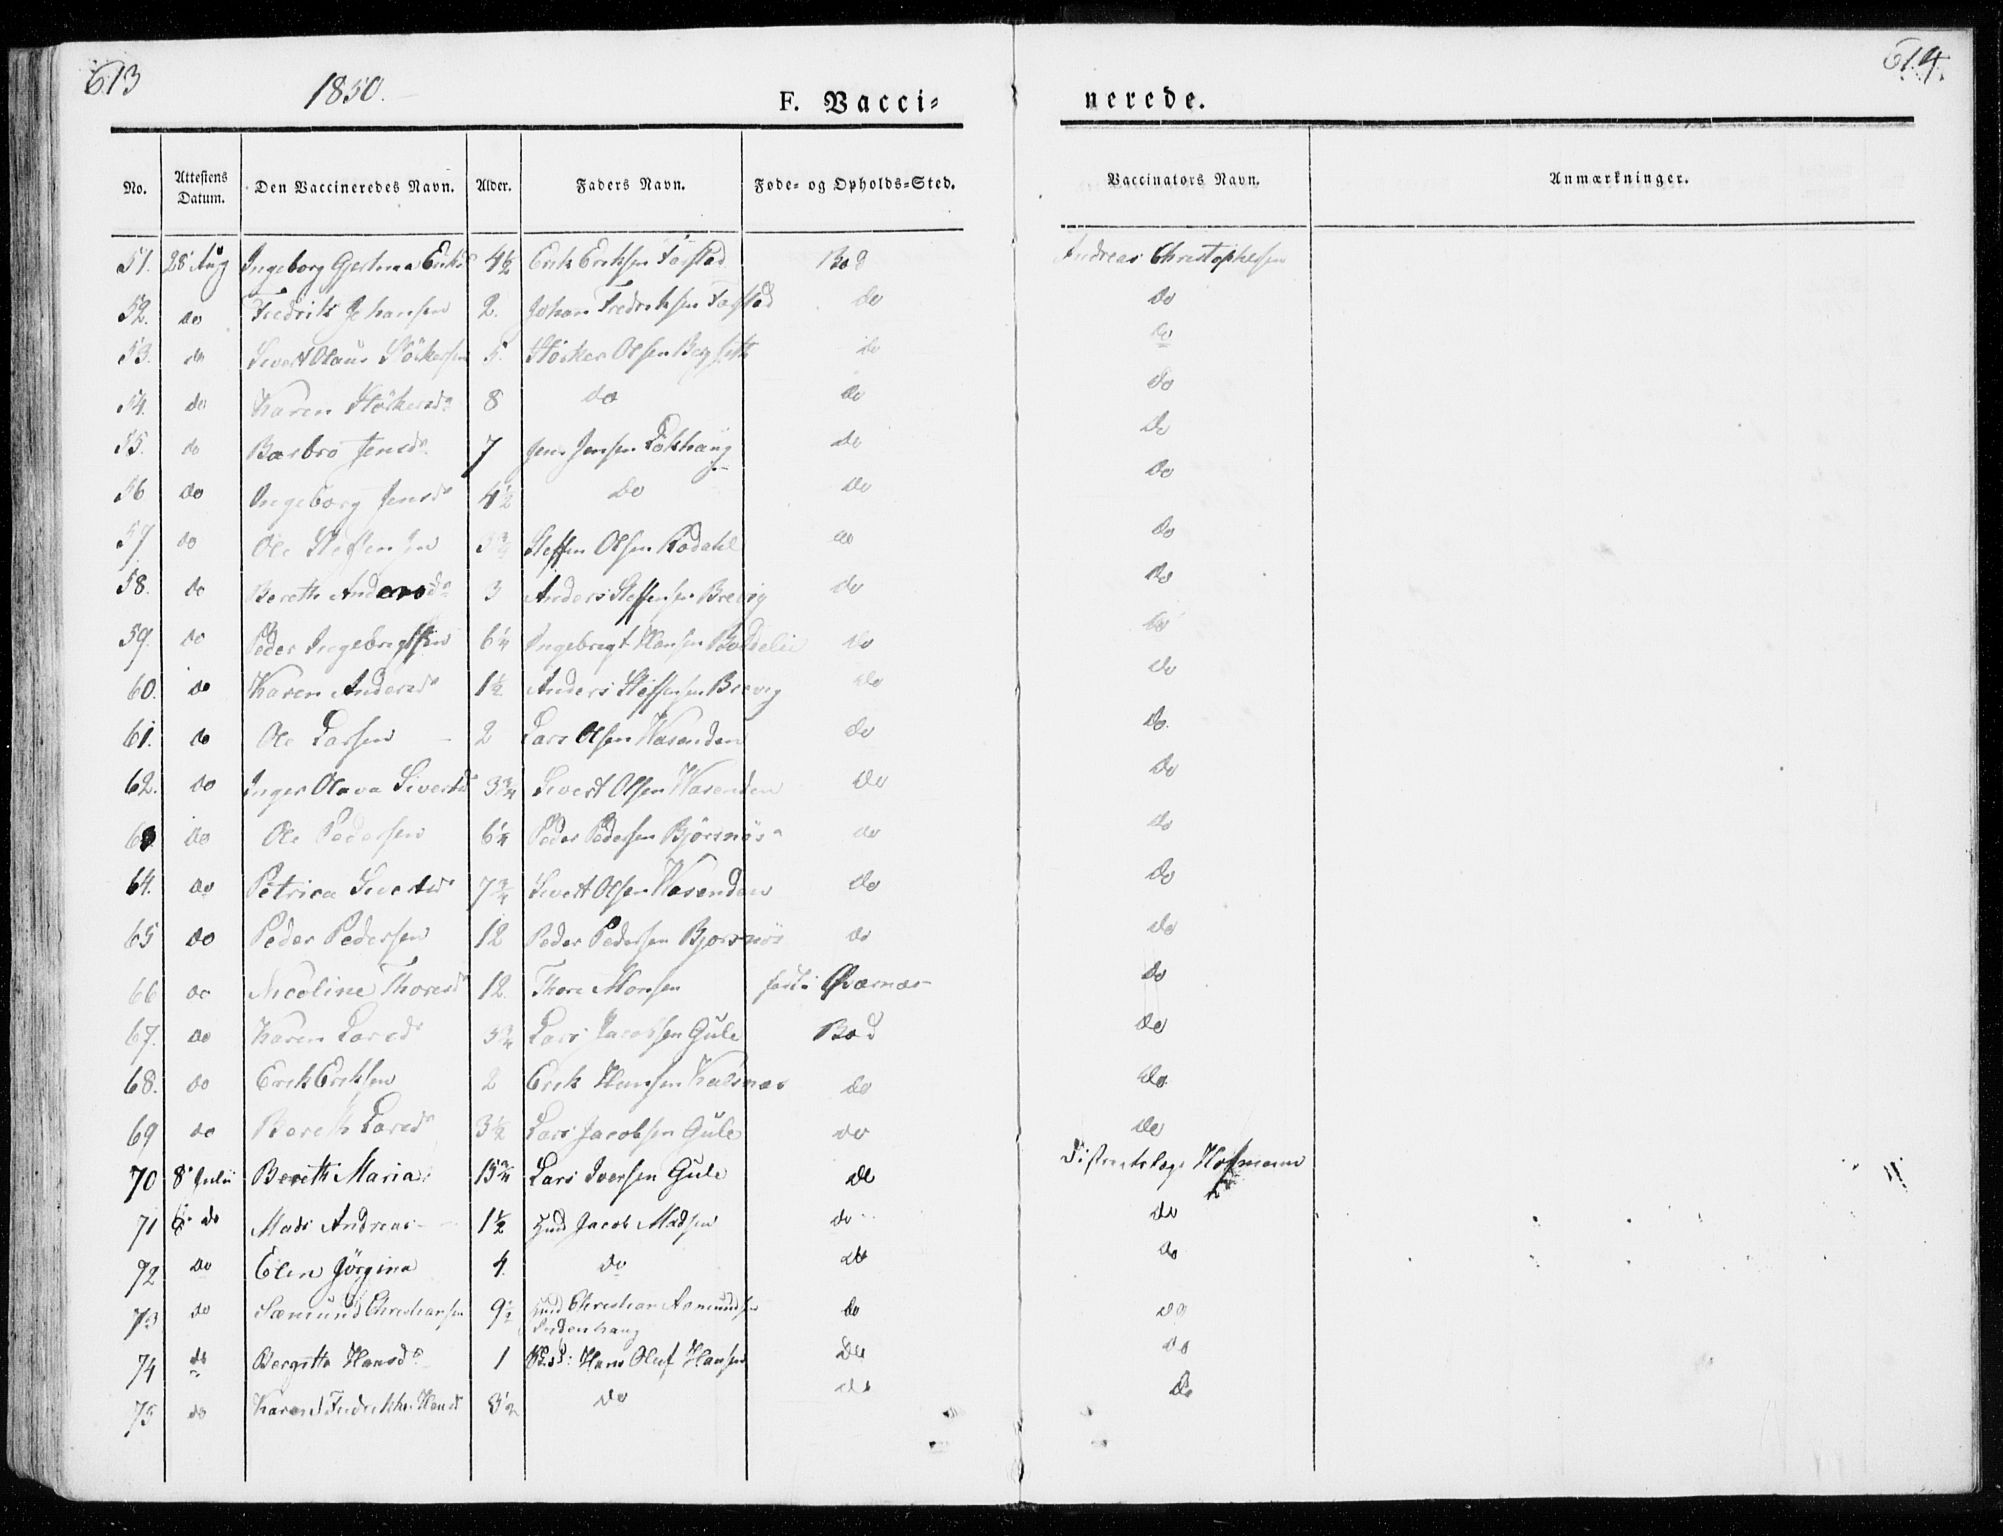 613
614.
1850.
F. Vacci=
nerede.
No. Attestens Datum. Den Vaccineredes Navn. Alder. Faders Navn. Føde- og Opholds-Sted. Vaccinators Navn. Anmærkninger.
51. 28 Aug Ingeborg Gjertina Eriksd 4½ Erik Eriksen Fagstad Bod Andreas Christophersen
52. do Fredrik Johansen 2. Johan Fredriksen Fagstad do do
53. do Sivert Olaus Stökersen 5. Störker Olsen Bergseth do do
54. do Karen Störkersdr 8 do do do
55. do Barbro Jensdr 7 Jens Jensen Lökhaug do do
56 do Ingeborg Jensdr 4½ do do do
57 do Ole Steffensen 5¾ Steffen Olsen Rödahl do do
58. do Bereth Andersdr 3 Anders Steffensen Brevig do do
59. do Peder Ingebrigtsen 6¼ Ingebregt Hansen do do
60. do Karen Andersdr 1½ Anders Steffensen Brevig do do
61. do Ole Larsen 2 Lars Olsen Wasenden do do.
62. do Inger Olava Sivertsd 3¾ Sivert Olsen Wasenden do do
63 do Ole Pedersen 6¼ Peder Pedersen Björsnös do do
64. do Petrica Sivertsdr 7¾ Sivert Olsen Wasenden do do
65 do Peder Pedersen 12 Peder Pedersen Bjorsnös do do
66 do Nicoline Thoresdr 12. Thore Monsen født i Qværnæs do
67. do Karen Larsdr 5¾ Lars Jacobsen Gule Bod do
68. do Erik Eriksen 2 Erik Hansen Kalsnæs do do
69 do Bereth Larsdr 3½ Lars Jacobsen Gule do do
70 8 Julii Bereth Maria 15¾ Lars Iversen Gule do Districtslæge Hofmann
71 6 do Mads Andreas 1½ Hmd Jacob Madsen do do
72 do Elen Jörgina 4. do do do
73 do Sæmund Christiansen 9½ Hmd Christian Aamundsen
do do
74 do Bergitte Hansdr 1 Hans Oluf Hansen do do
75 do Karen Fredrikke Hansd 3½ do do do